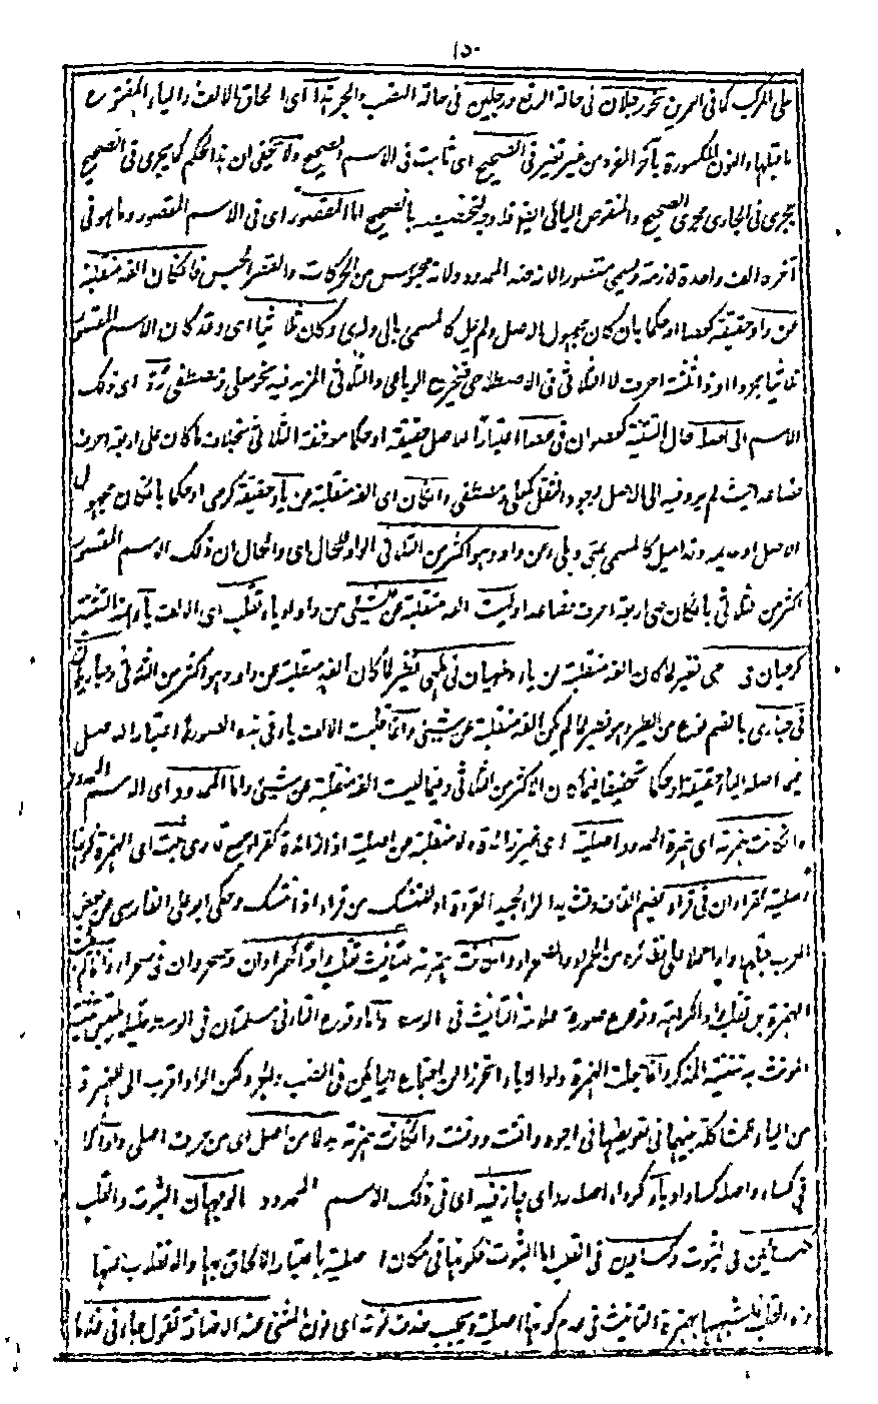 ١٥٠
على المركب كما فى المعرب نحو رجلان فى حالة الرفع ورجلين فى حالة النصب والجر هذا اى الحاق الالف والياء المفتوح
ما قبلها والنون المكسورة بآخر المفرد من غير تغير فى الصحيح اى ثابت فى الاسم الصحيح ولا يخفى ان هذا الحكم كما يجرى فى الصحيح
يجرى فى الجارى مجرى الصحيح والمنقوص اليائى ايضا فلا وجه لتخصيصه بالصحيح اما المقصور اى فى الاسم المقصور وما هو فى
آخره الف واحدة لازمة ويسمى مقصورا لانه ضد الممدود ولانه محبوس من الحركات والقصر الحبس فانكان الفه منقلبة
عن واو حقيقة كعصا او حكما بان كان مجهول الاصل ولم يمل كالمسمى بالى ولدى وكان ثلاثيا اى وقد كان الاسم المقصور
ثلاثيا مجردا او ذا ثلثة احرف لا الثلاثى فى الاصطلاحى فيخرج الرباعى والثلاثى المزيد فيه نحو معلى ومصطفى رد اى ذلك
الاسم الى اصله حال التثنية كعصوان فى عصا اعتبارا للاصل حقيقة او حكما مع خفة الثلاثى بخلاف ما كان على اربعة احرف
فصاعدا حيث لم يرد فيه الى الاصل لوجود الثقل كمعلى ومصطفى وانكان اى الفه منقلبة عن ياء حقيقة كرحى او حكما بانكان مجهول
الاصل او عديمه وقد اميل كالمسمى بمتى وبلى او عن واو وهو اكثر من الثلاثى الواو للحال اى والحال ان ذلك الاسم المقصور
اكثر من ثلاثى بانكان على اربعة احرف فصاعدا او ليست الفه منقلبة عن شيئ من واو او ياء تقلب اى الالف ياء عند التثنية
كرحيان فى رحى نظير لما كان الفه منقلبة عن ياء وملهيان فى ملهى نظير لما كان الفه منقلبة عن واو وهو اكثر من الثلاثى وحباريان
فى حبارى بالضم نوع من الطير وهو نظير لما لم يكن الفه منقلبة عن شيئ وانما قلبت الالف ياء فى هذه الصورة اعتبارا للاصل
فيما اصله الياء حقيقة او حكما وتخفيفا فيما كان اكثر من الثلاثى وفيما ليست الفه منقلبة عن شيئ واما الممدود اى الاسم الممدود
وانكانت همزته اى همزة الممدود اصلية اى غير زائدة ولا منقلبة عن اصلية او زائدة كقراء جمع قارى تثبت اى الهمزة لكونها
اصلية كقراءان فى قراء بضم القاف وتشديد الراء لجيد القراءة او للمتنسك من قراء اذا تنسك وحكى ابو على الفارسى عن بعض
العرب قلبها واوا حملا على نظائره من الحمراء والصحراء وانكانت همزته للتأنيث تقلب واوا كحمراوان وصحراوان فى صحراء وانما لم
الهمزة بل تقلب واوا لكراهية وقوع صورة علامة التأنيث فى الوسط واما وقوع التاء فى مسلمتان فى الوسط
المؤنث به تثنية المذكر وانما جعلت الهمزة واوا لا ياء احترازا عن اجتماع اليائين فى النصب والجر ولكن الواو اقرب الى الهمزة
من الياء لمشاكلة بينهما فى تعويضها فى اجوه واقتت ووقتت وانكانت همزته بدلا من اصل اى من حرف اصلى واوا كما
فى كساء واصله كساو او ياء كرداء اصله رداى جاز فيه اى فى ذلك الاسم الممدود الوجهان الثبوت والقلب
ككسائين فى الثبوت وكساوين فى القلب اما الثبوت فلكونها فى مكان اصلية باعتبار الالحاق بها والانقلاب عنها
واما القلب فلشبهها بهمزة التأنيث فى عدم كونها اصلية ويجب حذف نونه اى نون المثنى عند الاضافة تقول جاءنى غلاما